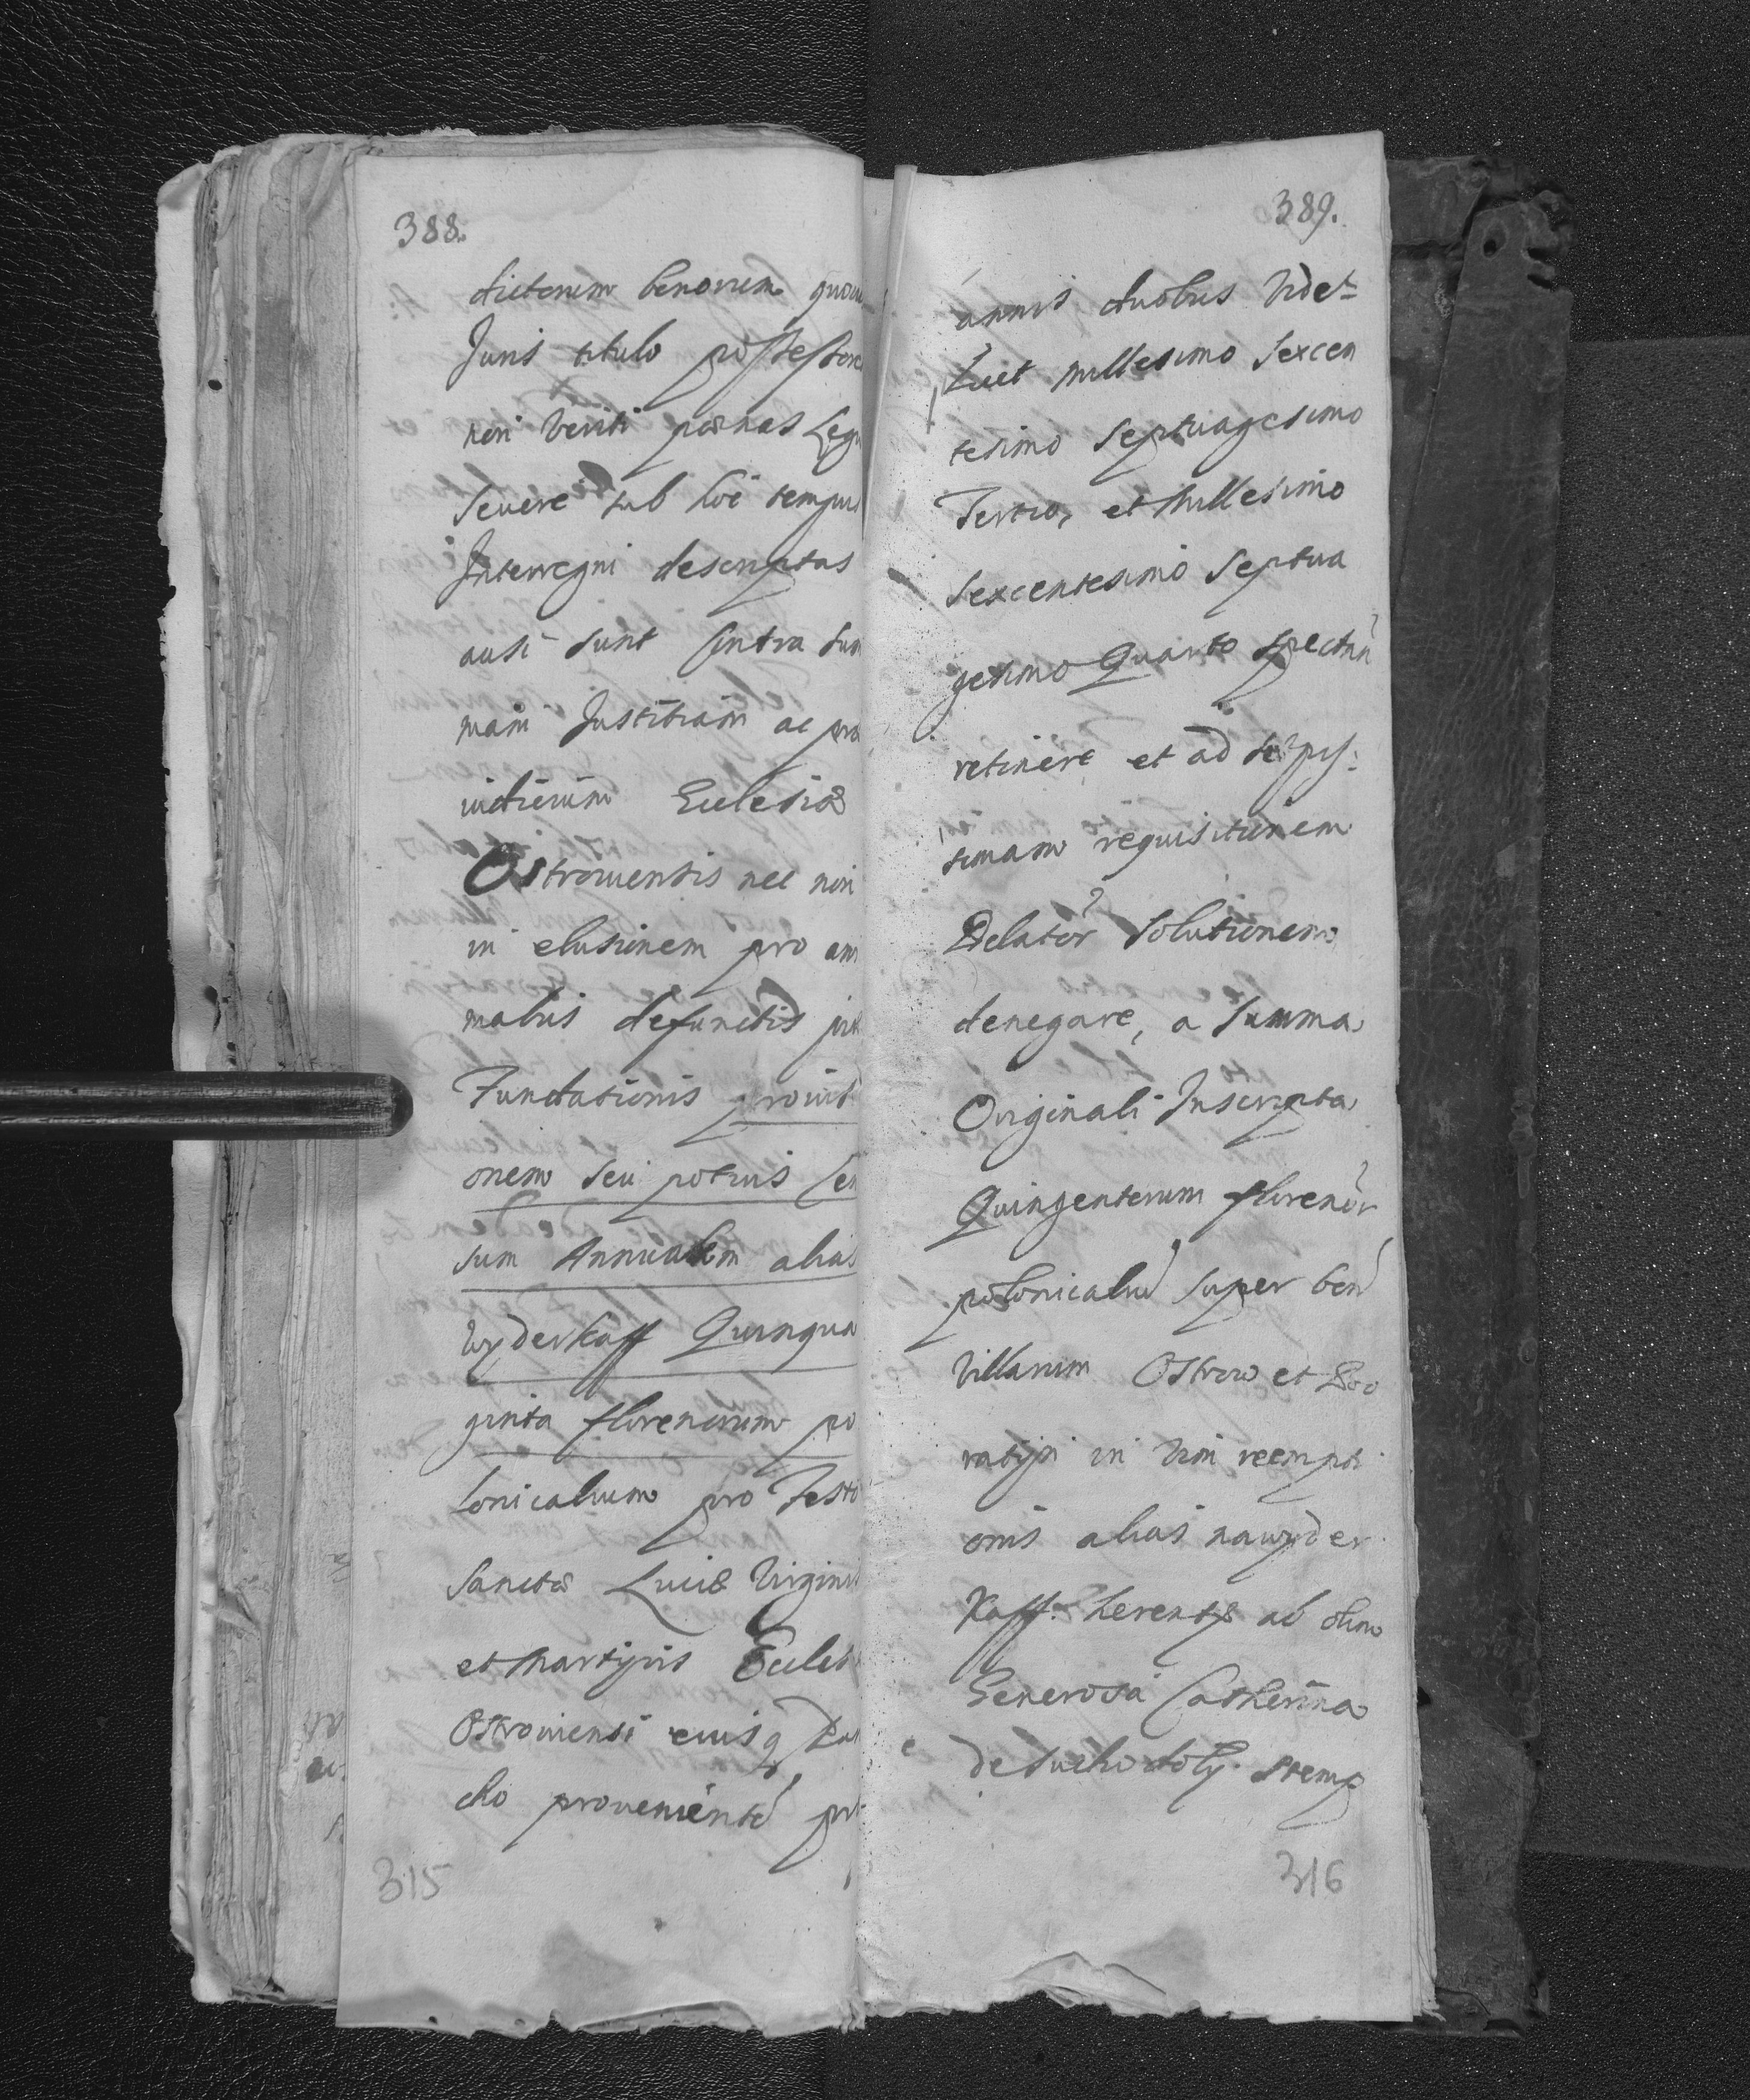 388.
dictorum bonorum quou
Juris titulo possessore
non veriti pœnas Legu
Seuere sub hoc tempus
Interregni descriptas
ausi sunt contra sum
mam Justitiam ac præ
iudicium Ecclesiæ
Ostrouiensis nec non
in elusionem pro ani
mabus defunctis
Fundationis prouisi
onem seu potius Cen
sum Annualem alias
Wyderkaff Quinqua
ginta florenorum po
lonicalium pro Festo
Sanctæ Luciæ Virginis
et Martyris Eccles
Ostrouiensi eiusq
cho prouenientē
315
389.
annis duobus Videt
Lucet millesimo Sexcen
tesimo Septuagesimo
Tertio, et Millesimo
Sexcentesimo Septua
gesimo Quarto Spectan
retinere et ad sæpis:
simam requisitionem
Delator Solutionem
denegare, a Summa
Originali Inscripta
Quingentorum florenor
polonicaliu super bon
Villarum Ostrow et
ratyn in vim reempti
onis alias nawyder
Kaff. herentẽ ab olim
Generosa Catherina
de Suchodoly Stemp
316